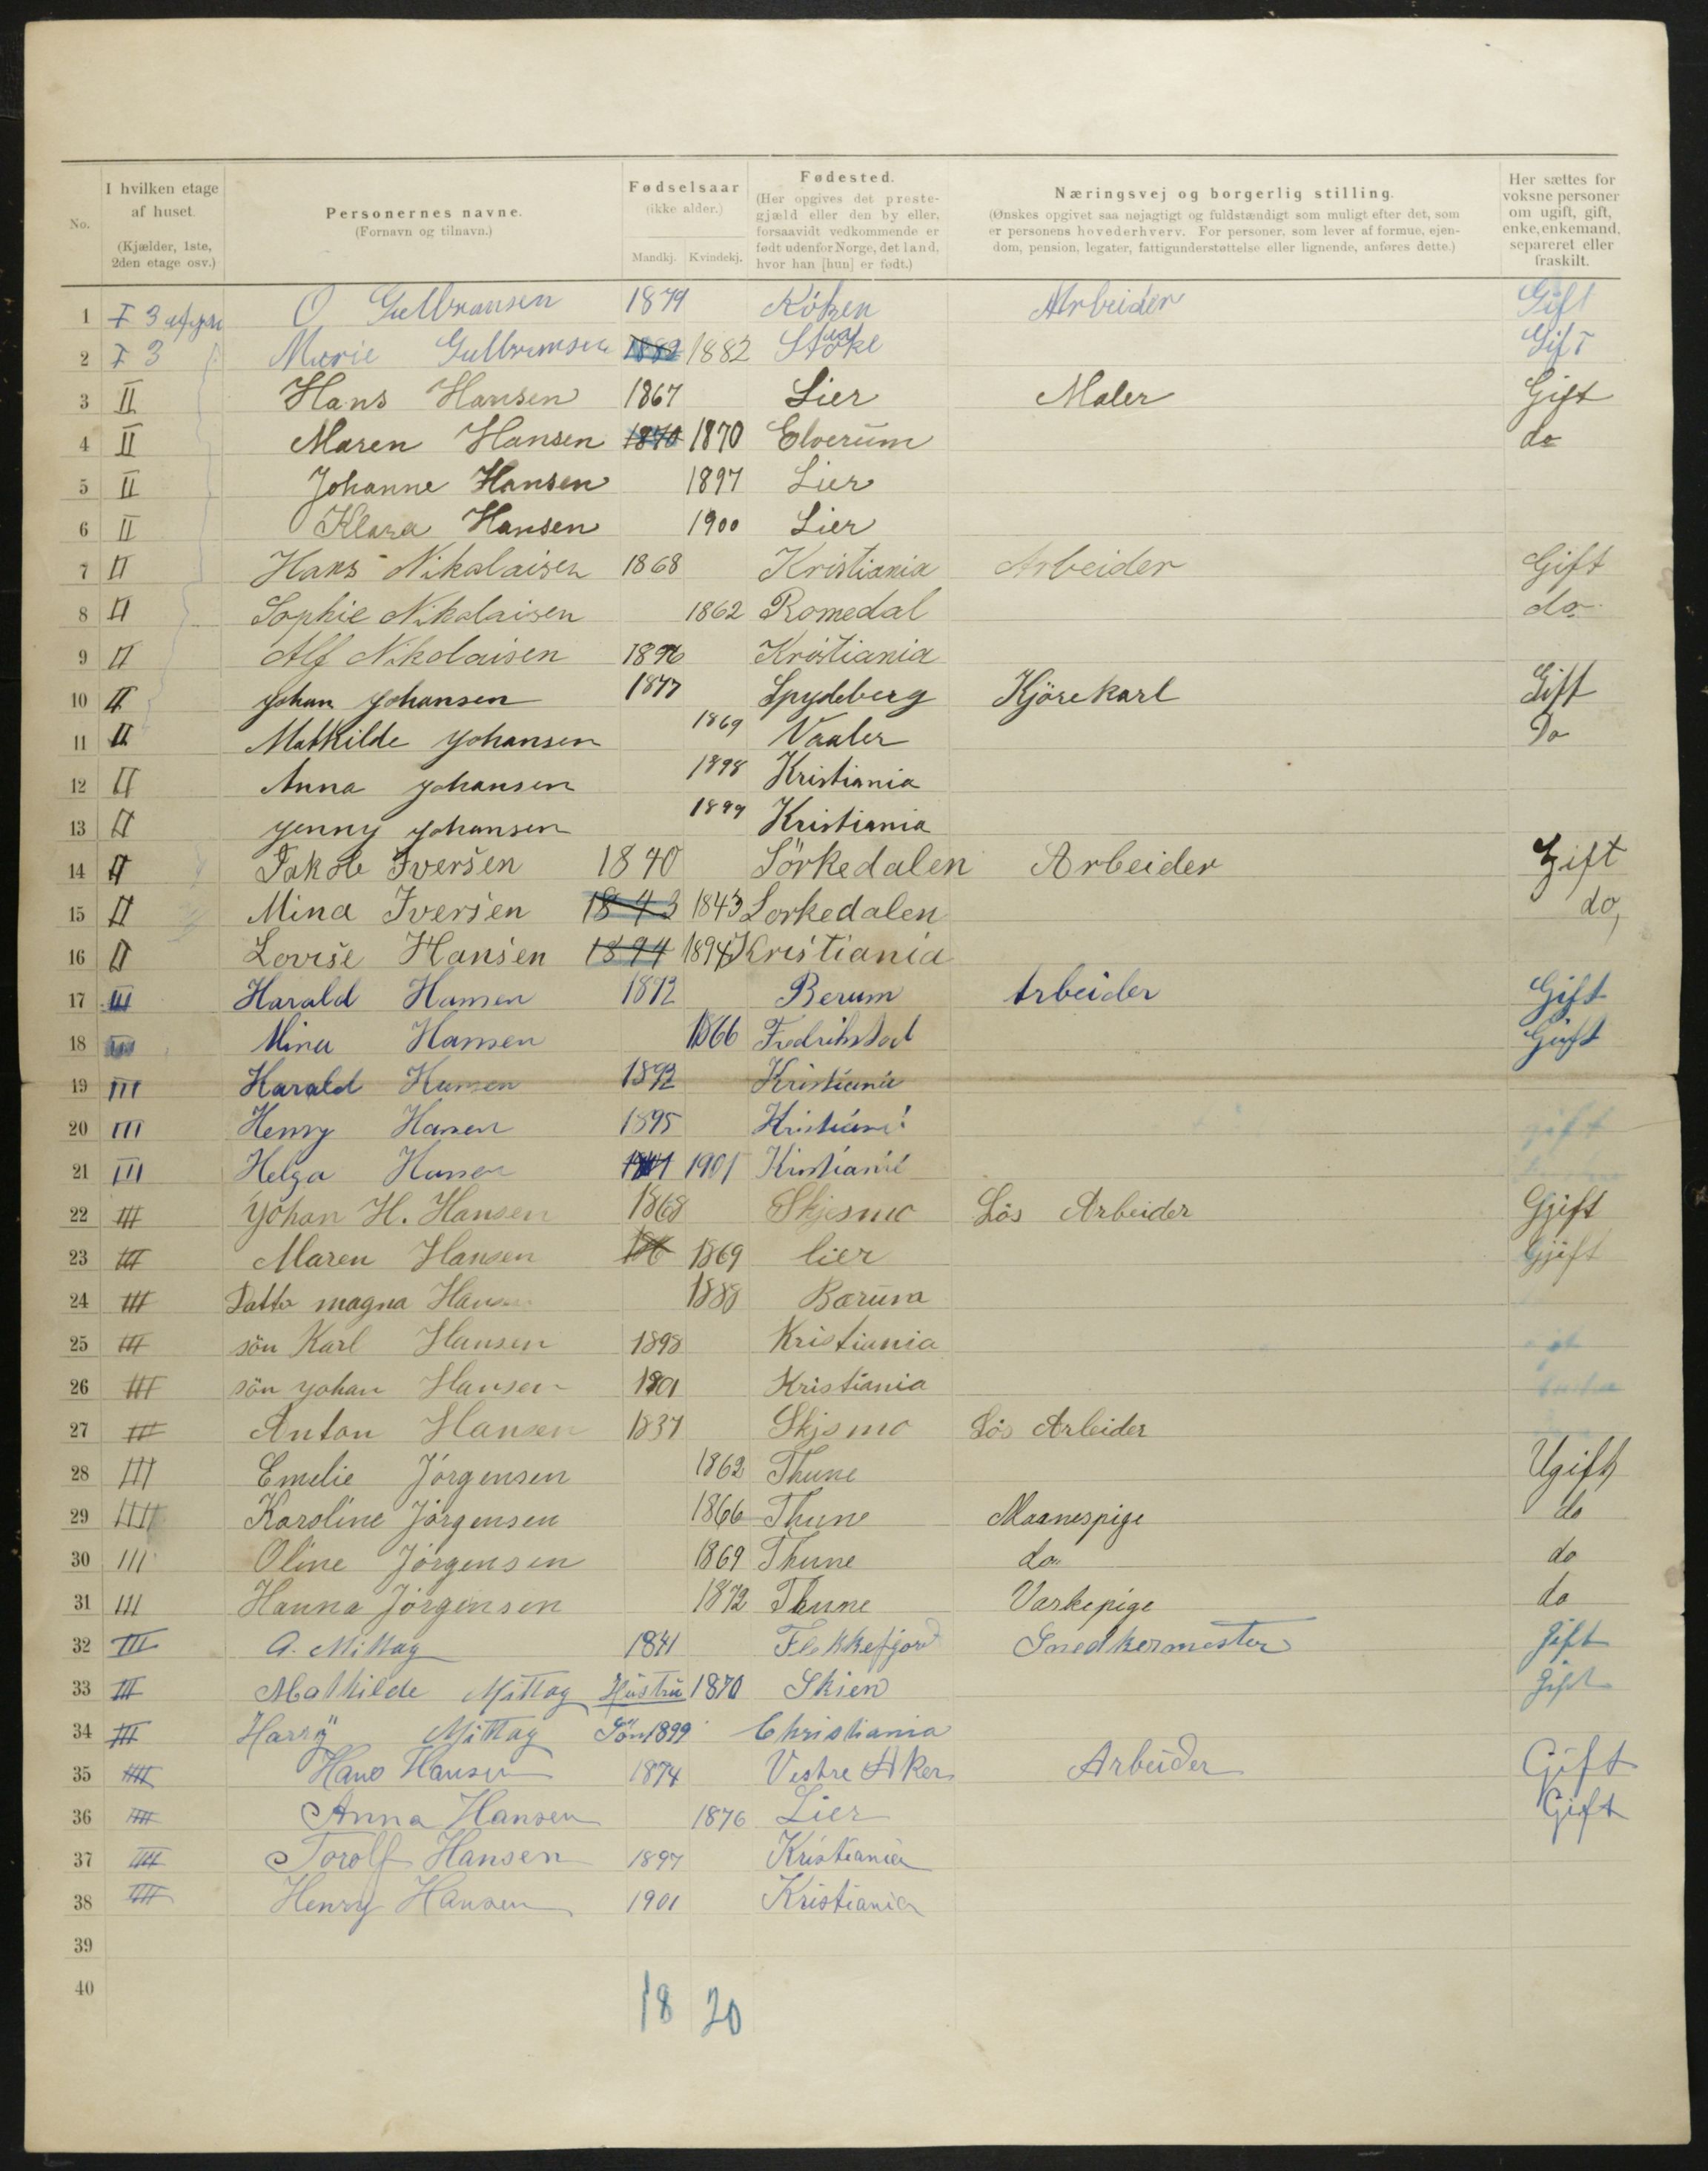 No. | I hvilken etage af huset. (Kjælder, 1ste, 2den etage osv.) | Personernes navne. (Fornavn og tilnavn.) | Fødselsaar (ikke alder.) Mandkj. Kvindekj. | Fødested. (Her opgives det prestegjæld eller den by eller, forsaavidt vedkommende er født udenfor Norge, det land, hvor han [hun] er født.) | Næringsvej og borgerlig stilling. (Ønskes opgivet saa nøjagtigt og fuldstændigt som muligt efter det, som er personens hovederhverv. For personer, som lever af formue, ejendom, pension, legater, fattigunderstøttelse eller lignende, anføres dette.) | Her sættes for voksne personer om ugift, gift, enke, enkemand, separeret eller fraskilt.
1 I 3 O Gulbransen 1879 Röken Arbeider Gift
2 I 3 Marie Gulbransen 1882 1882 Gift
3 II Hans Hansen 1867 Lier Maler Gift
4 II Maren Hansen 1870 1870 Elverum do
5 II Johanne Hansen 1897 Lier
6 II Klara Hansen 1900 Lier
7 II Hans Nikolaisen 1868 Kristiania Arbeider Gift
8 II Sophie Nikolaisen 1862 Romedal do
9 II Alf Nikolaisen 1896 Kristiania
10 II Johan Johansen 1877 Spydeberg Kjörekarl Gift
11 II Mathilde Johansen 1869 Vaaler Do
12 II Anna Johansen 1898 Kristiania
13 II Jenny Johansen 1899 Kristiania
14 II Jakob Iversen 1840 Sörkedalen Arbeider Gift
15 II Mina Iversen 1843 1843 Sorkedalen do,
16 II Lovise Hansen 1894 1894 Kristiania
17 III Harald Hansen 1872 Berum Arbeider Gift
18 III Mina Hansen 1866 Fredrikstad Gift
19 III Harald Hansen 1892 Kristiania
20 III Henry Hansen 1895 Kristiani
21 III Helga Hansen 1901 Kristiania
22 III Johan H. Hansen 1868 Skjesmo Lös Arbeider Gjift
23 III Maren Hansen 186 1869 lier Gjift
24 III Datter magna Hansen 1888 Bærum
25 III sön Karl Hansen 1898 Kristiania
26 III sön Johan Hansen 1901 Kristiania
27 III Anton Hansen 1837 Skjesmo Lös Arbeider
28 III Emelie Jörgensen 1862 Thune Ugift
29 III Karoline Jörgensen 1866 Thune Maanespige do
30 III Oline Jörgensen 1869 Thune do do
31 III Hanna Jörgensen 1872 Thune Vaskepige do
32 III A. Mittag 1841 Flekkefjord Snedkermester Gift
33 III Mathilde Mittag Hustru 1870 Skien Gift
34 III Harry Mittag Sön 1899 Christiania
35 IIII Hans Hansen 1874 Vestre Aker Arbeider Gift
36 IIII Anna Hansen 1876 Lier Gift
37 IIII Torolf Hansen 1897 Kristiania
38 IIII Henry Hansen 1901 Kristiania
39
40
18 20